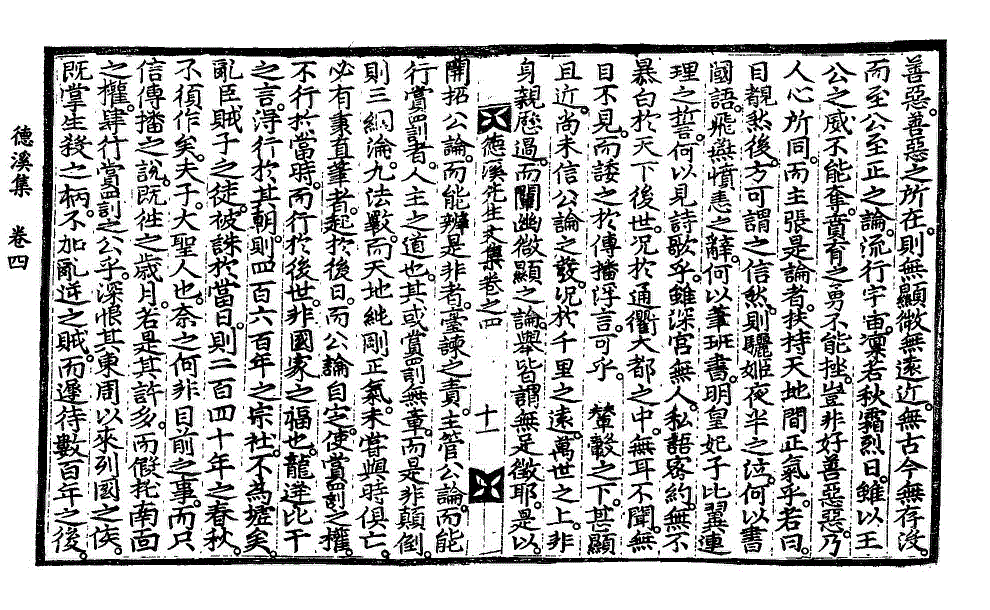 善惡。善惡之所在。則無顯微無遠近。無古今無存沒。
而至公至正之論。流行宇宙。凜若秋霜烈日。雖以王
公之威不能奪。賁育之勇不能挫。豈非好善惡惡。乃
人心所同。而主張是論者。扶持天地間正氣乎。若曰。
目覩然後。方可謂之信然。則驪姬夜半之泣。何以書
國語。飛燕憤恚之辭。何以筆班書。明皇妃子比翼連
理之誓。何以見詩歌乎。雖深宮無人。私語密約。無不
暴白於天下後世。況於通衢大都之中。無耳不聞。無
目不見。而諉之於傳播浮言。可乎。 輦轂之下。甚顯
且近。尚未信公論之發。況於千里之遠。萬世之上。非
身親歷過。而闡幽微顯之論。擧皆謂無足徵耶。是以。
德溪先生文集卷之四 十一
開招公論。而能辨是非者。臺諫之責。主管公論。而能
行賞罰者。人主之道也。其或賞罰無章。而是非顛倒。
則三綱淪。九法斁。而天地純剛正氣。未嘗與時俱亡。
必有秉直筆者。起於後日。而公論自定。使賞罰之權。
不行於當時。而行於後世。非國家之福也。龍逄比干
之言。得行於其朝。則四百六百年之宗社。不爲墟矣。
亂臣賊子之徒。被誅於當日。則二百四十年之春秋。
不須作矣。夫子。大聖人也。奈之何非目前之事。而只
信傳播之說。旣往之歲月。若是其許多。而假托南面
之權。肆行賞罰之公乎。深恨其東周以來列國之侯。
旣掌生殺之柄。不加亂逆之賊。而遲待數百年之後。
德溪集 卷四